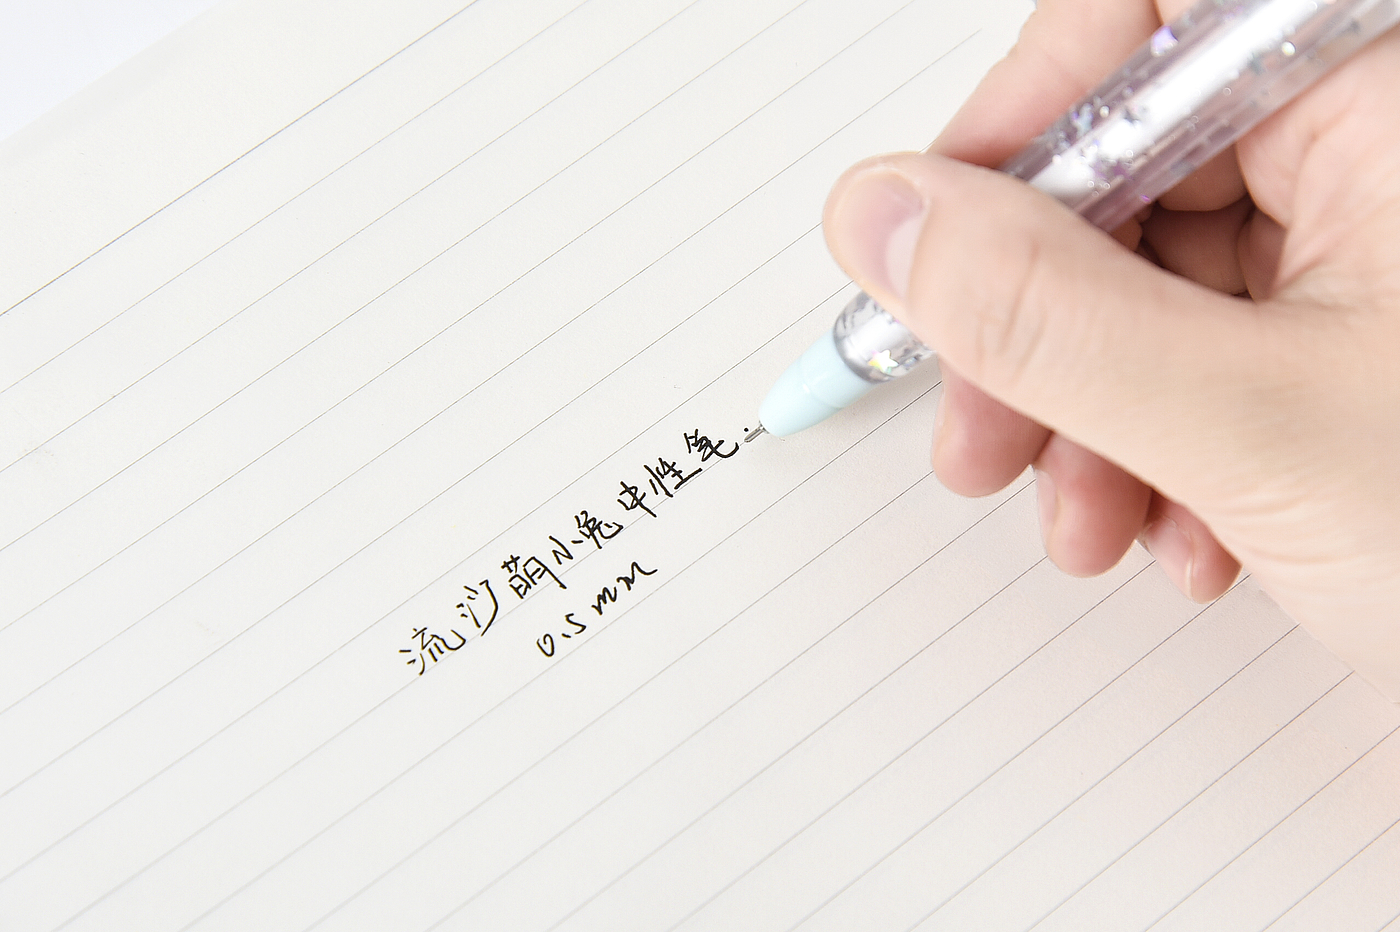 流沙萌小兔中性笔.
0.5mm